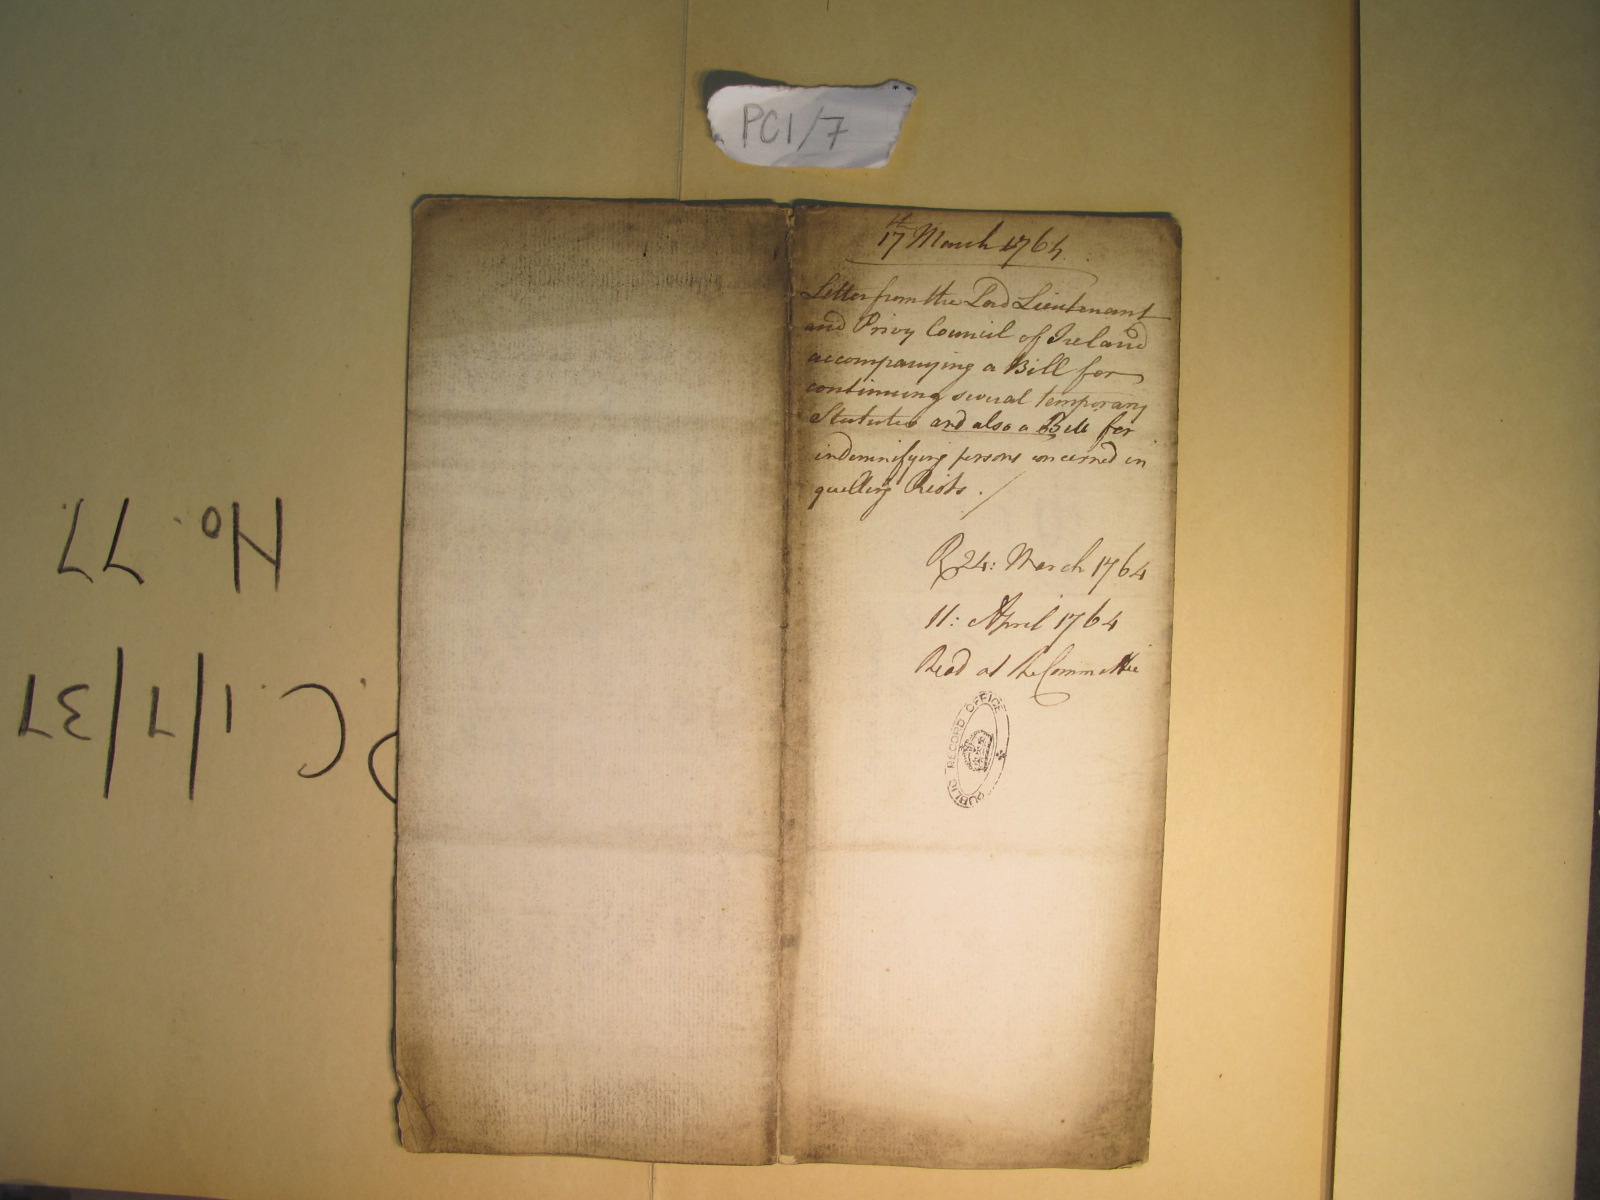 PC1/7
17th March 1764
Letter from the Lord Lieutenant
and Privy Council of Ireland
accompanying a Bill for
continuing several temporary
Statutes and also a Bill for
indemnifying persons concerned in
quelling Riots.
R 24: March 1764
11: April 1764
Read at the Committee
PUBLIC RECORD OFFICE
P.C. 1/7/37
No. 77